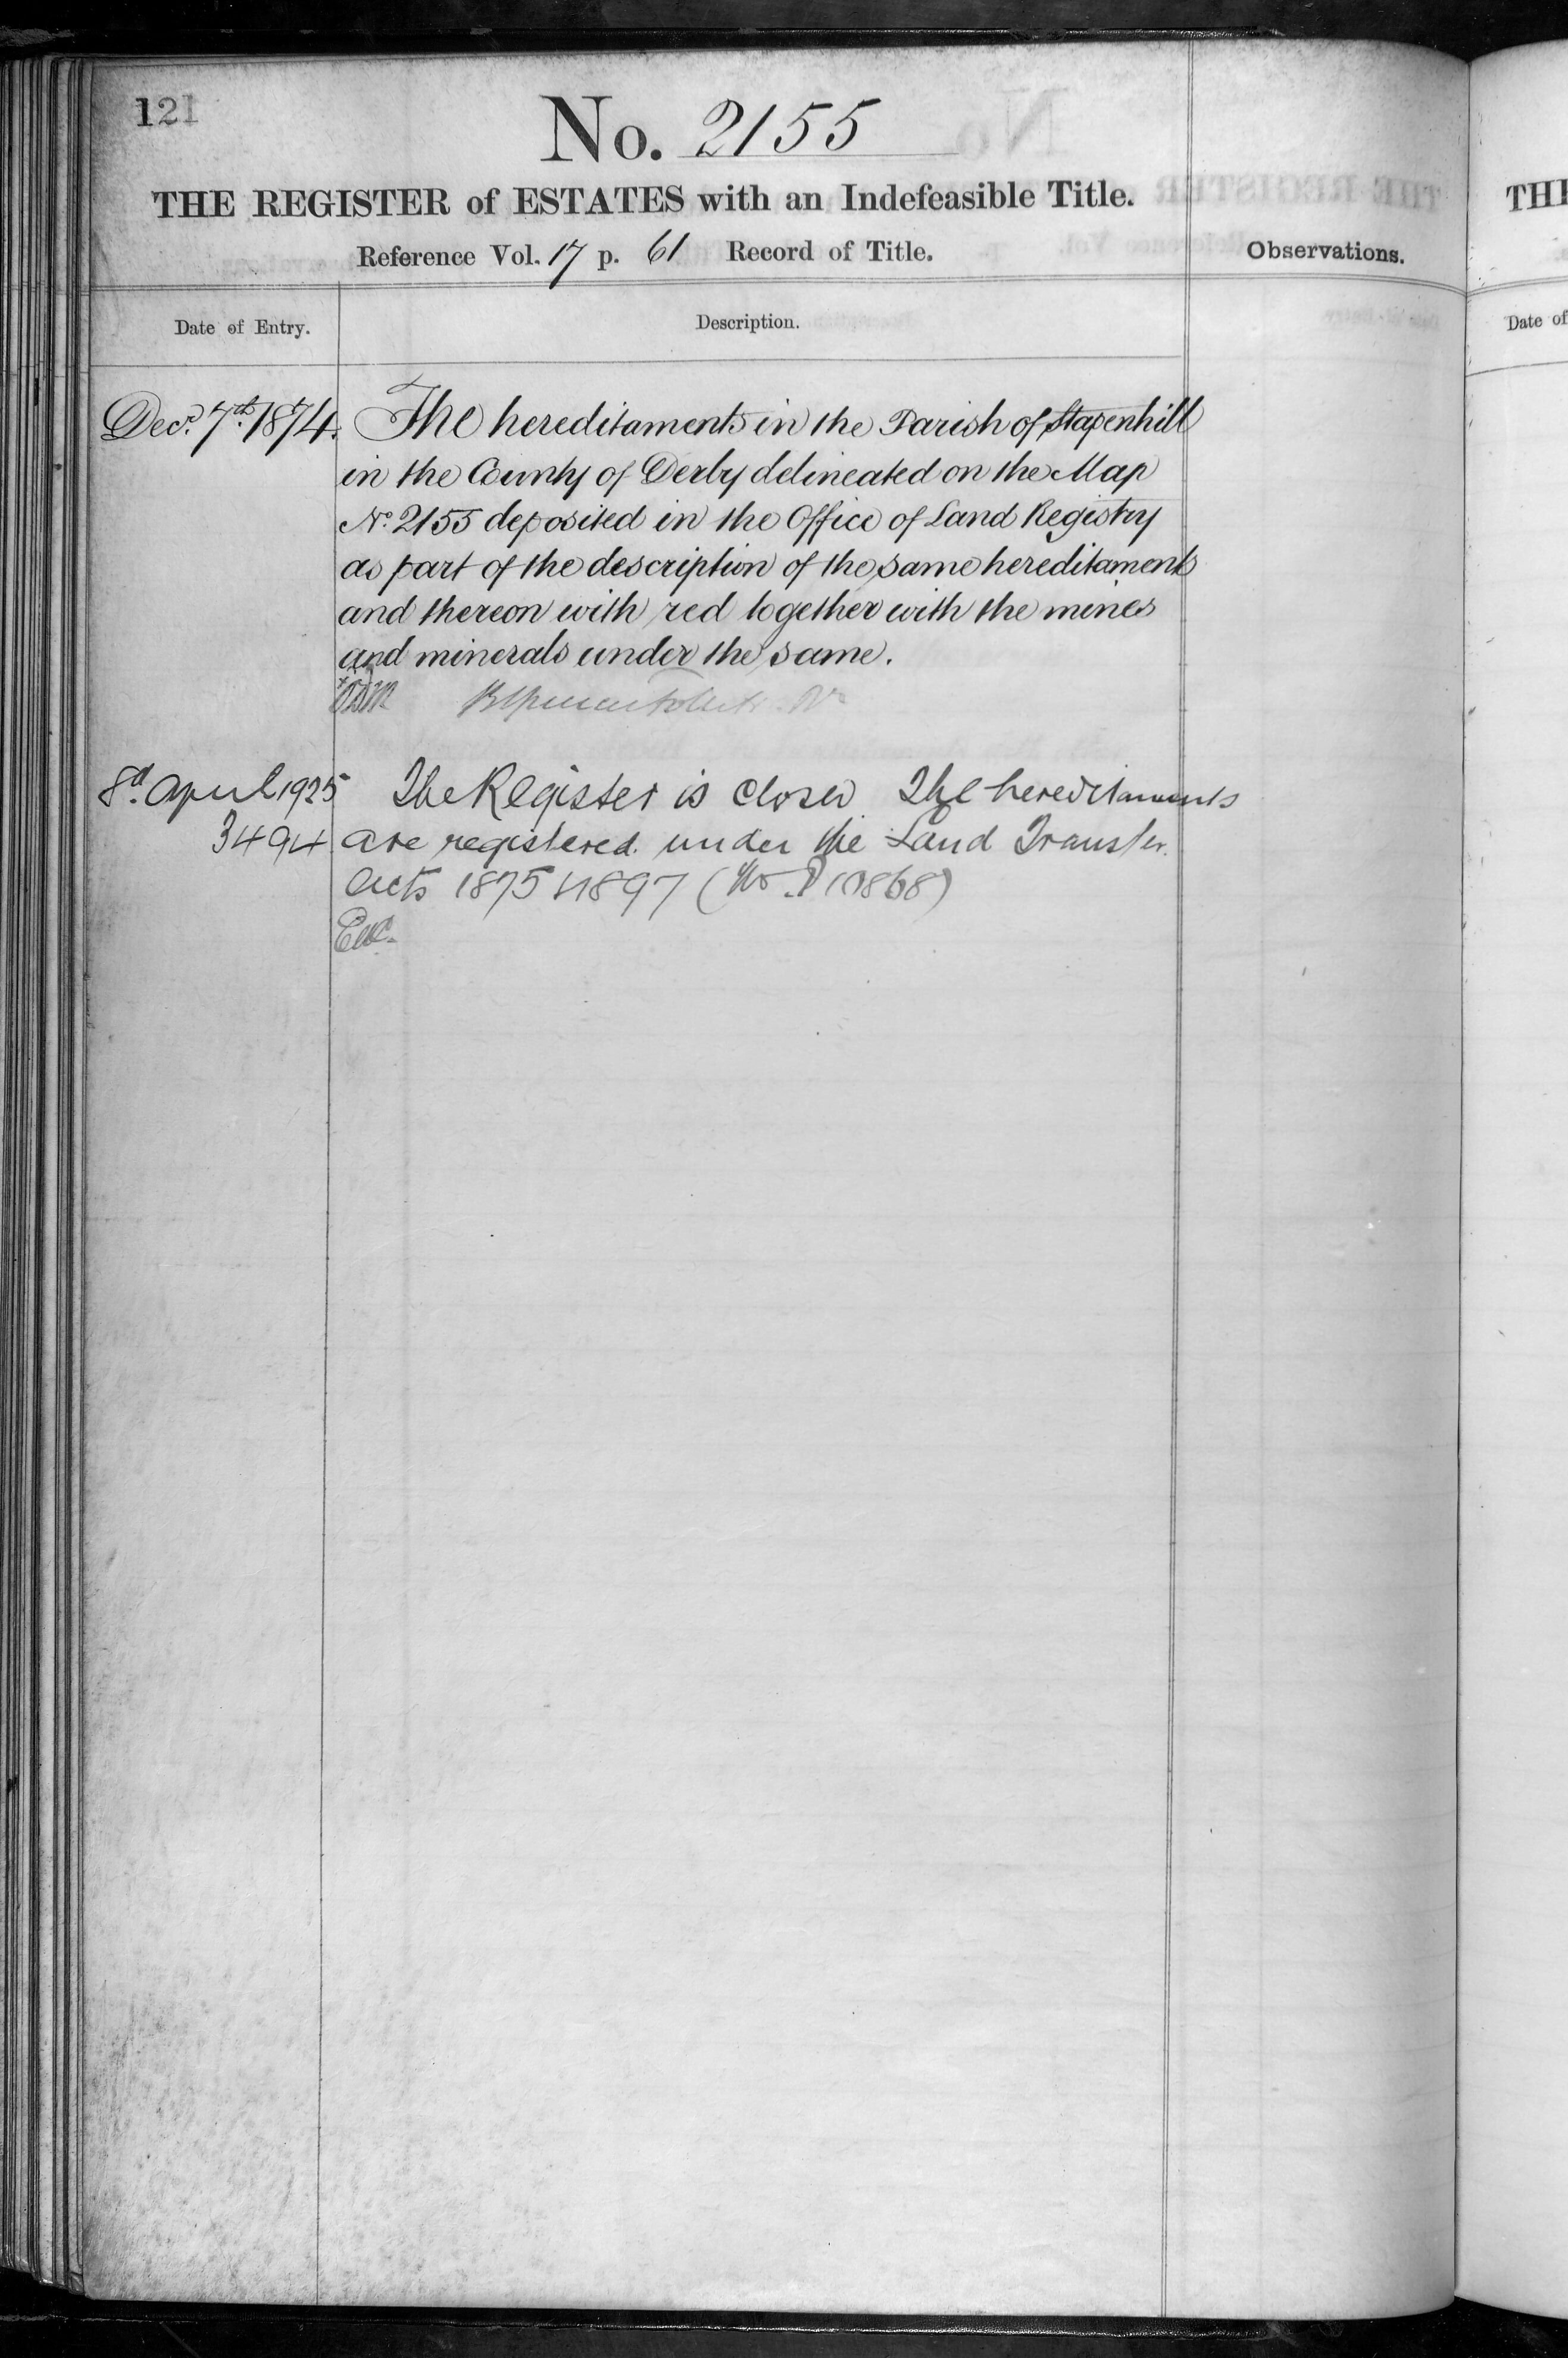 121
No. 2155
THE REGISTER of ESTATES with an Indefeasible Title.
Reference Vol. 17 p. 61 Record of Title.
Observations.
Date of Entry.
Description.
Decr. 7th. 1874. The hereditaments in the Parish of Stapenhill
in the County of Derby delineated on the Map
No. 2155 deposited in the Office of Land Registry
as part of the description of the same hereditaments
and thereon with red together with the mines
and minerals under the same.
8th. April 1925 The Register is closed The hereditaments
3494 are registered under the Land Transfer
Acts 1875 & 1897 (No. P 10868)
THE
Date of